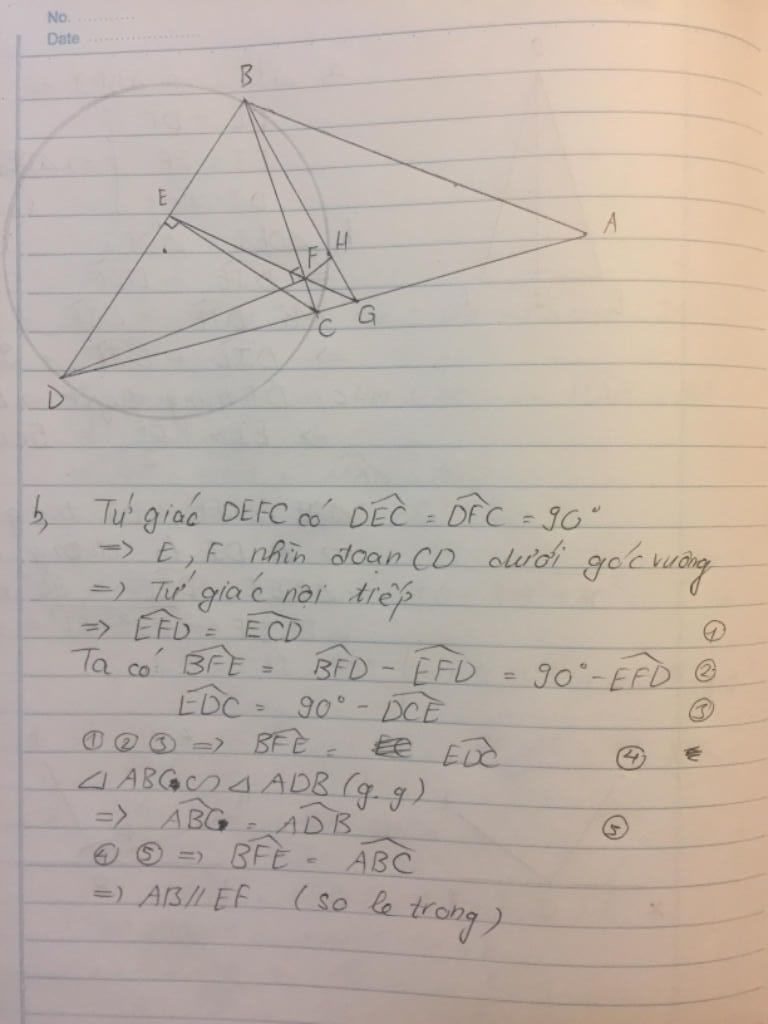 No. ............
Date ........................
B
E
A
H
F
C
G
D
b, Tứ giác DEFC có DEC = DFC = 90°
=> E, F nhìn đoạn CD dưới góc vuông
=> Tứ giác nội tiếp
=> EFD = ECD ①
Ta có: BFE = BFD - EFD = 90° - EFD ②
EDC = 90° - DCE ③
① ② ③ => BFE = EDC ④
△ ABC ∽ △ ADB (g.g)
=> ABC = ADB ⑤
④ ⑤ => BFE = ABC
=> AB // EF (so le trong)